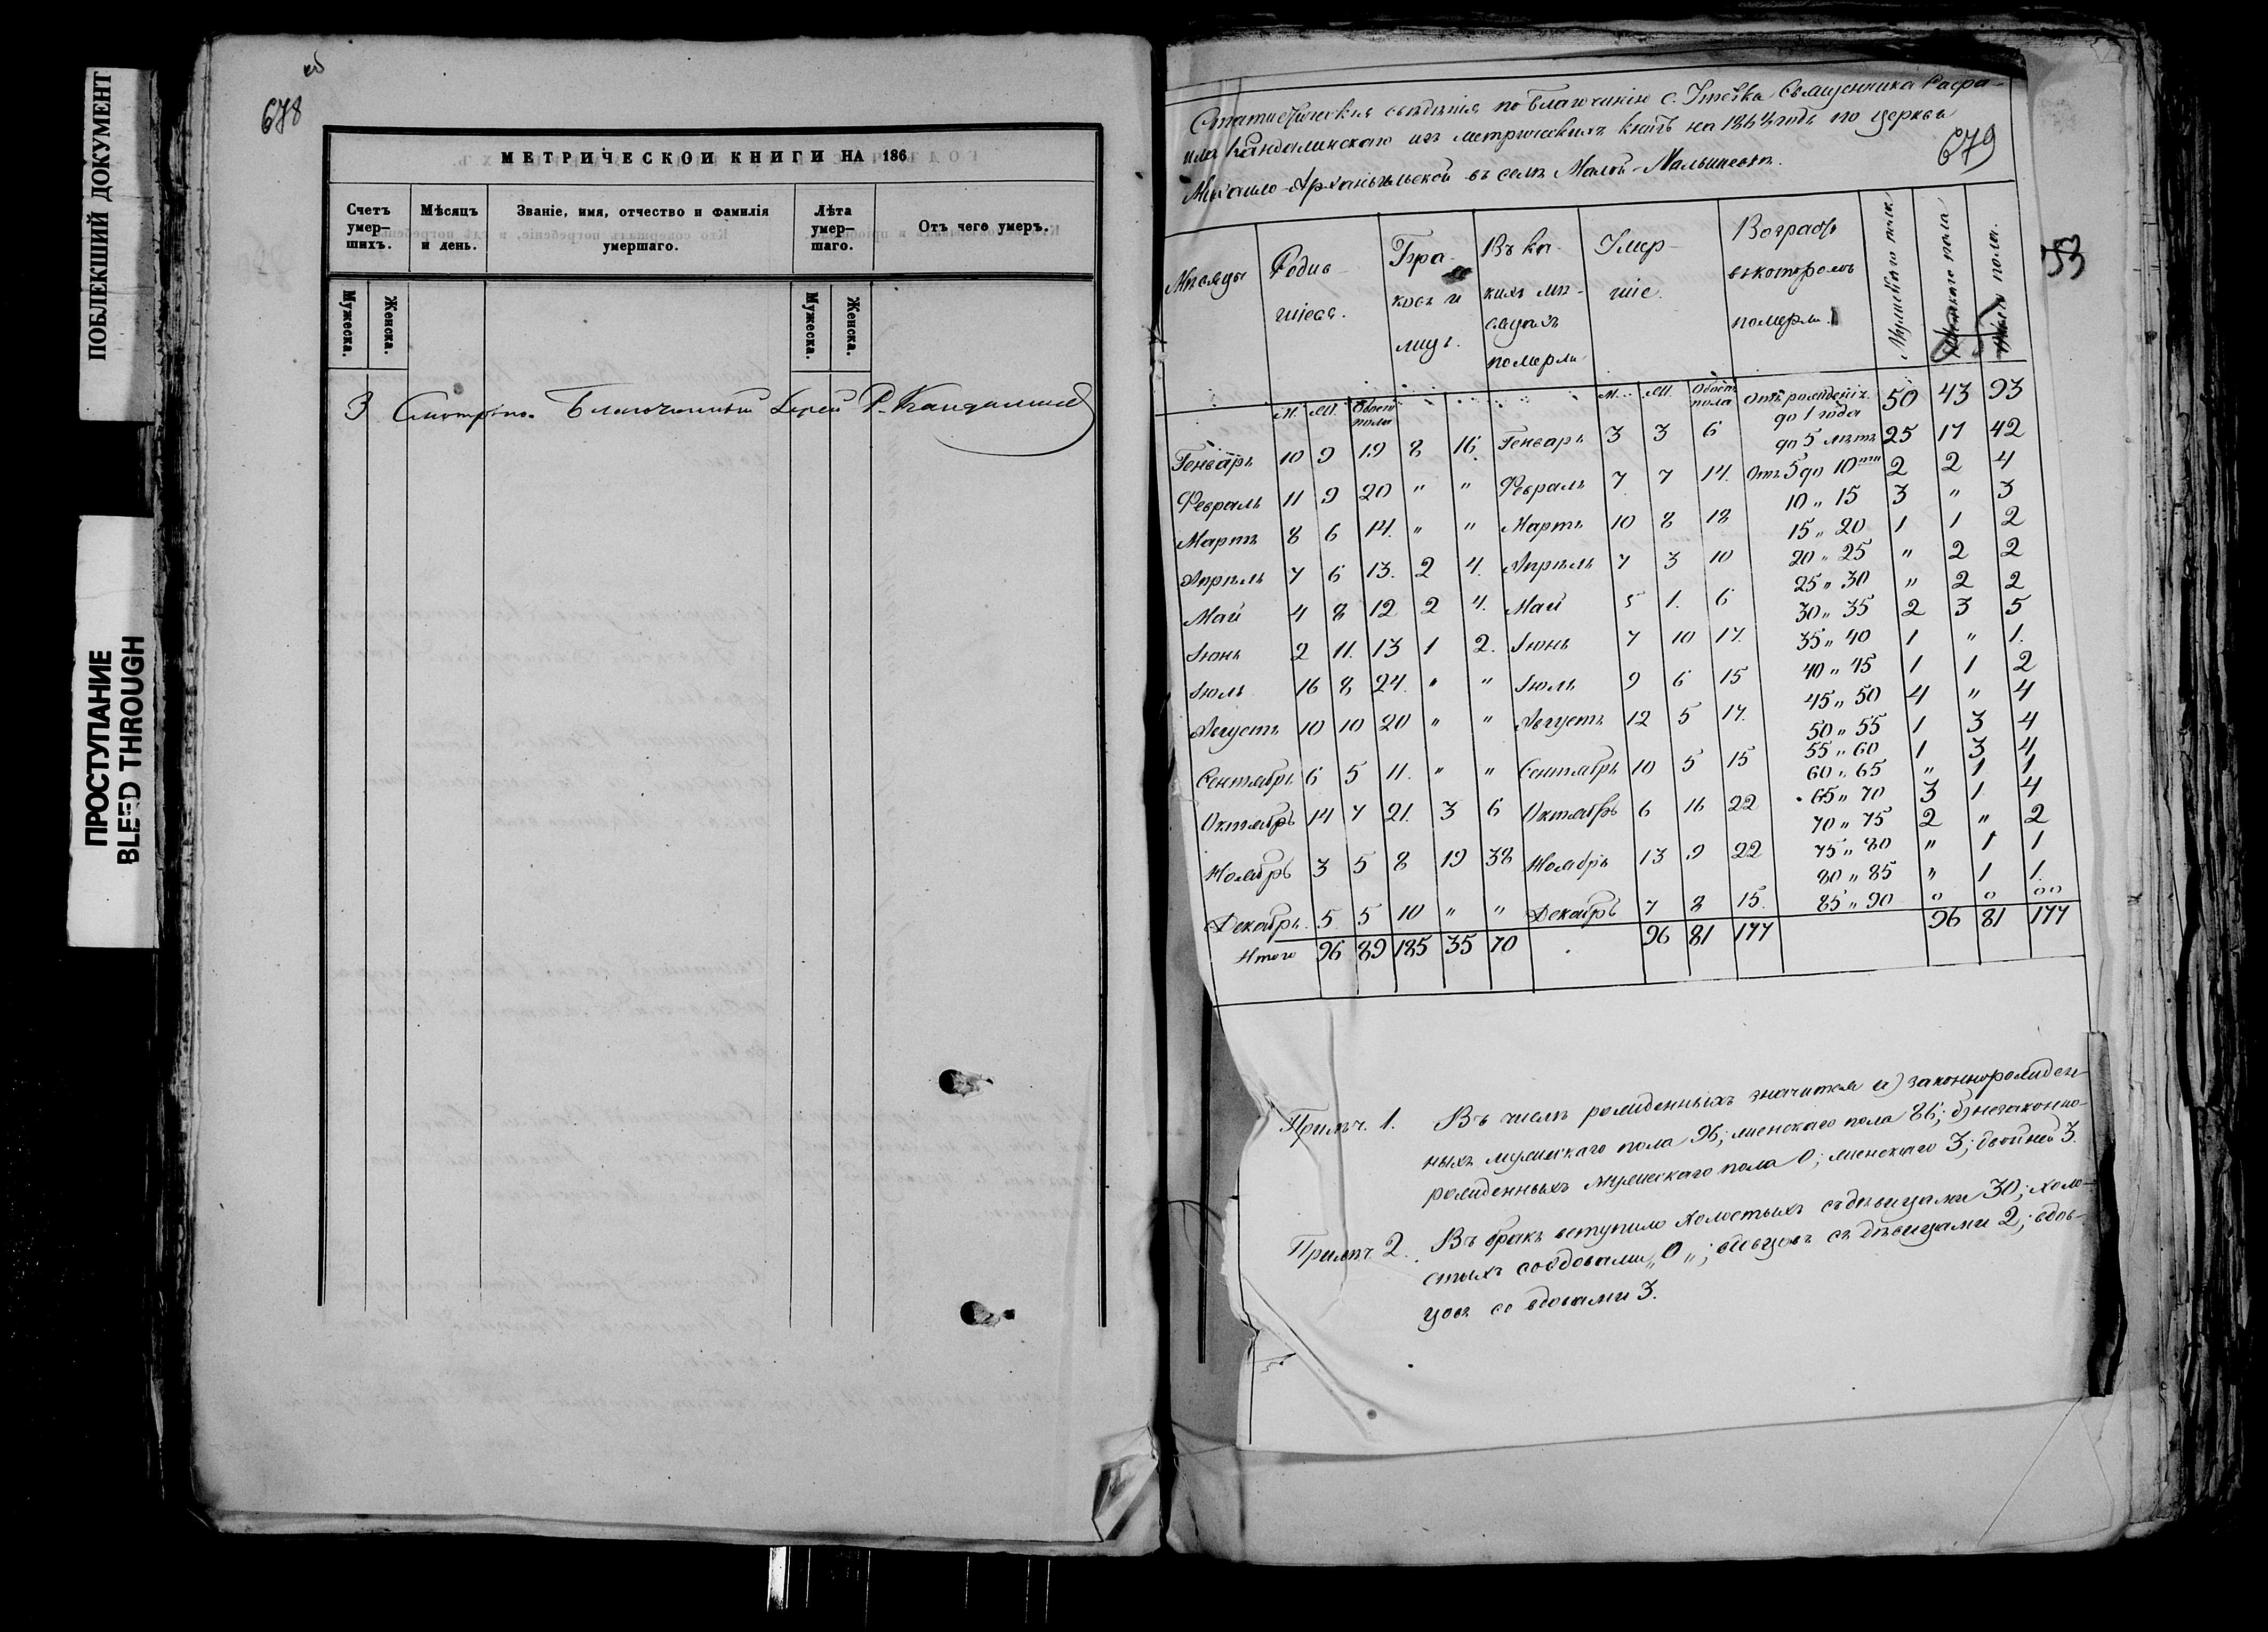 ПОБЛЕКШИЙ ДОКУМЕНТ
ПРОСТУПАНИЕ
BLEED THROUGH
об
678
МЕТРИЧЕСКОЙ КНИГИ НА 186
Счетъ умер-шихъ.
Мѣсяцъ и день.
Званіе, имя, отчество и фамилія умершаго.
Лѣта умер-шаго.
Отъ чего умеръ.
Мужеска.
Женска.
Мужеска.
Женска.
3 Смотрѣно. Благочинный Іерей Р. Кандалинскій
Статистическія свѣдѣнія по благочинію с. Утевка Священника Рафа-
ила Кандалинскаго изъ метрическихъ книгъ на 1864 годъ по церкви
Михаило-Архангельской въ селѣ Малой-Малышевкѣ.
679
53
Мѣсяцы
Родив-шіеся.
Бра-ковъ и лицъ.
Въ ка-кихъ мѣ-сяцахъ померли
Умер-шіе.
Возрастъ въ которомъ померли.
Мужескаго пола
Женскаго пола
Обоего пола.
М. Ж. Обоего пола М. Ж. Обоего пола Отъ рожденія до 1 года 50 43 93
до 5 лѣтъ 25 17 42
Генварь 10 9 19 8 16 Генварь 3 3 6
Отъ 5 до 10 2 2 4
Февраль 11 9 20 " " Февраль 7 7 14.
10 " 15 3 " 3
Мартъ 8 6 14. " " Мартъ 10 8 18
15 " 20 1 1 2
20 " 25 " 2 2
Апрѣль 7 6 13. 2 4. Апрѣль 7 3 10
25 " 30 " 2 2
Май 4 8 12 2 4. Май 5 1. 6
30 " 35 2 3 5
Іюнь 2 11. 13 1 2. Іюнь 7 10 17.
35 " 40 1 " 1.
40 " 45 1 1 2
Іюль 16 8 24. " " Іюль 9 6 15
45 " 50 4 " 4
Августъ 10 10 20 " " Августъ 12 5 17.
50 " 55 1 3 4
55 " 60 1 3 4
Сентябрь 6 5 11. " " Сентябрь 10 5 15
60 " 65 " 1 1
65 " 70 3 1 4
Октябрь 14 7 21. 3 6 Октябрь 6 16 22
70 " 75 2 " 2
75 " 80 " 1 1
Ноябрь 3 5 8 19 38 Ноябрь 13 9 22
80 " 85 " 1 1.
Декабрь. 5 5 10 " " Декабрь 7 8 15.
85 " 90 0 0 00
Итого 96 89 185 35 70 96 81 177 96 81 177
Примѣч. 1. Въ числѣ рожденныхъ значится а) законнорожден-
ныхъ мужескаго пола 96; женскаго пола 86; б) незаконно-
рожденныхъ мужескаго пола 0; женскаго 3; двойней 3.
Примѣч. 2. Въ бракъ вступило холостыхъ съ дѣвицами 30; холо-
стыхъ со вдовами „0"; вдовцовъ съ дѣвицами 2; вдов-
цовъ со вдовами 3.